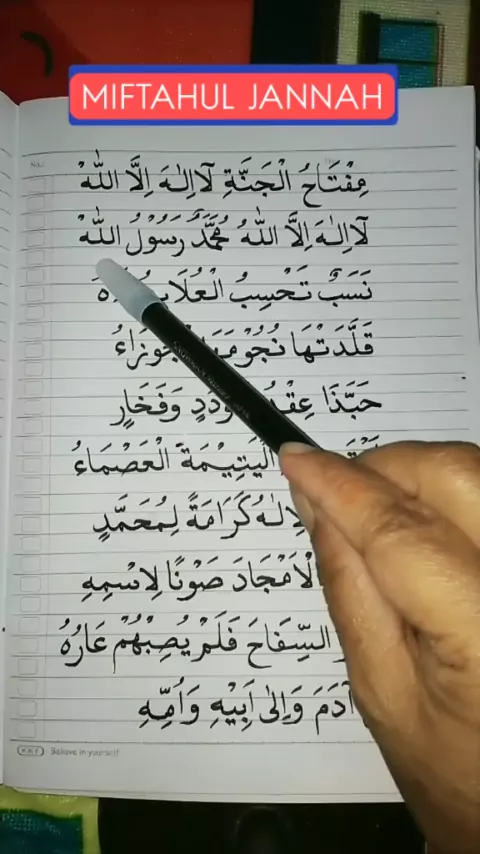 MIFTAHUL JANNAH
مِفْتَاحُ الْجَنَّةِ لَآاِلٰهَ اِلَّا اللهْ
لَآاِلٰهَ اِلَّا اللهُ مُحَمَّدٌ رَسُوْلُ اللهْ
نَسَبٌ تَحْسِبُ الْعُلَا
قَلَّدَتْهَا نُجُوْمَهَا الْجَوْزَاءُ
حَبَّذَا عِقْدُ سُوْدَدٍ وَفَخَارٍ
الْيَتِيْمَةُ الْعَصْمَاءُ
كَرَامَةً لِمُحَمَّدٍ
الْاَمْجَادَ صَوْنًا لِاسْمِهِ
السِّفَاحَ فَلَمْ يُصِبْهُمْ عَارُهُ
آدَمَ وَاِلٰى اَبِيْهِ وَاُمِّهِ
Believe in yourself